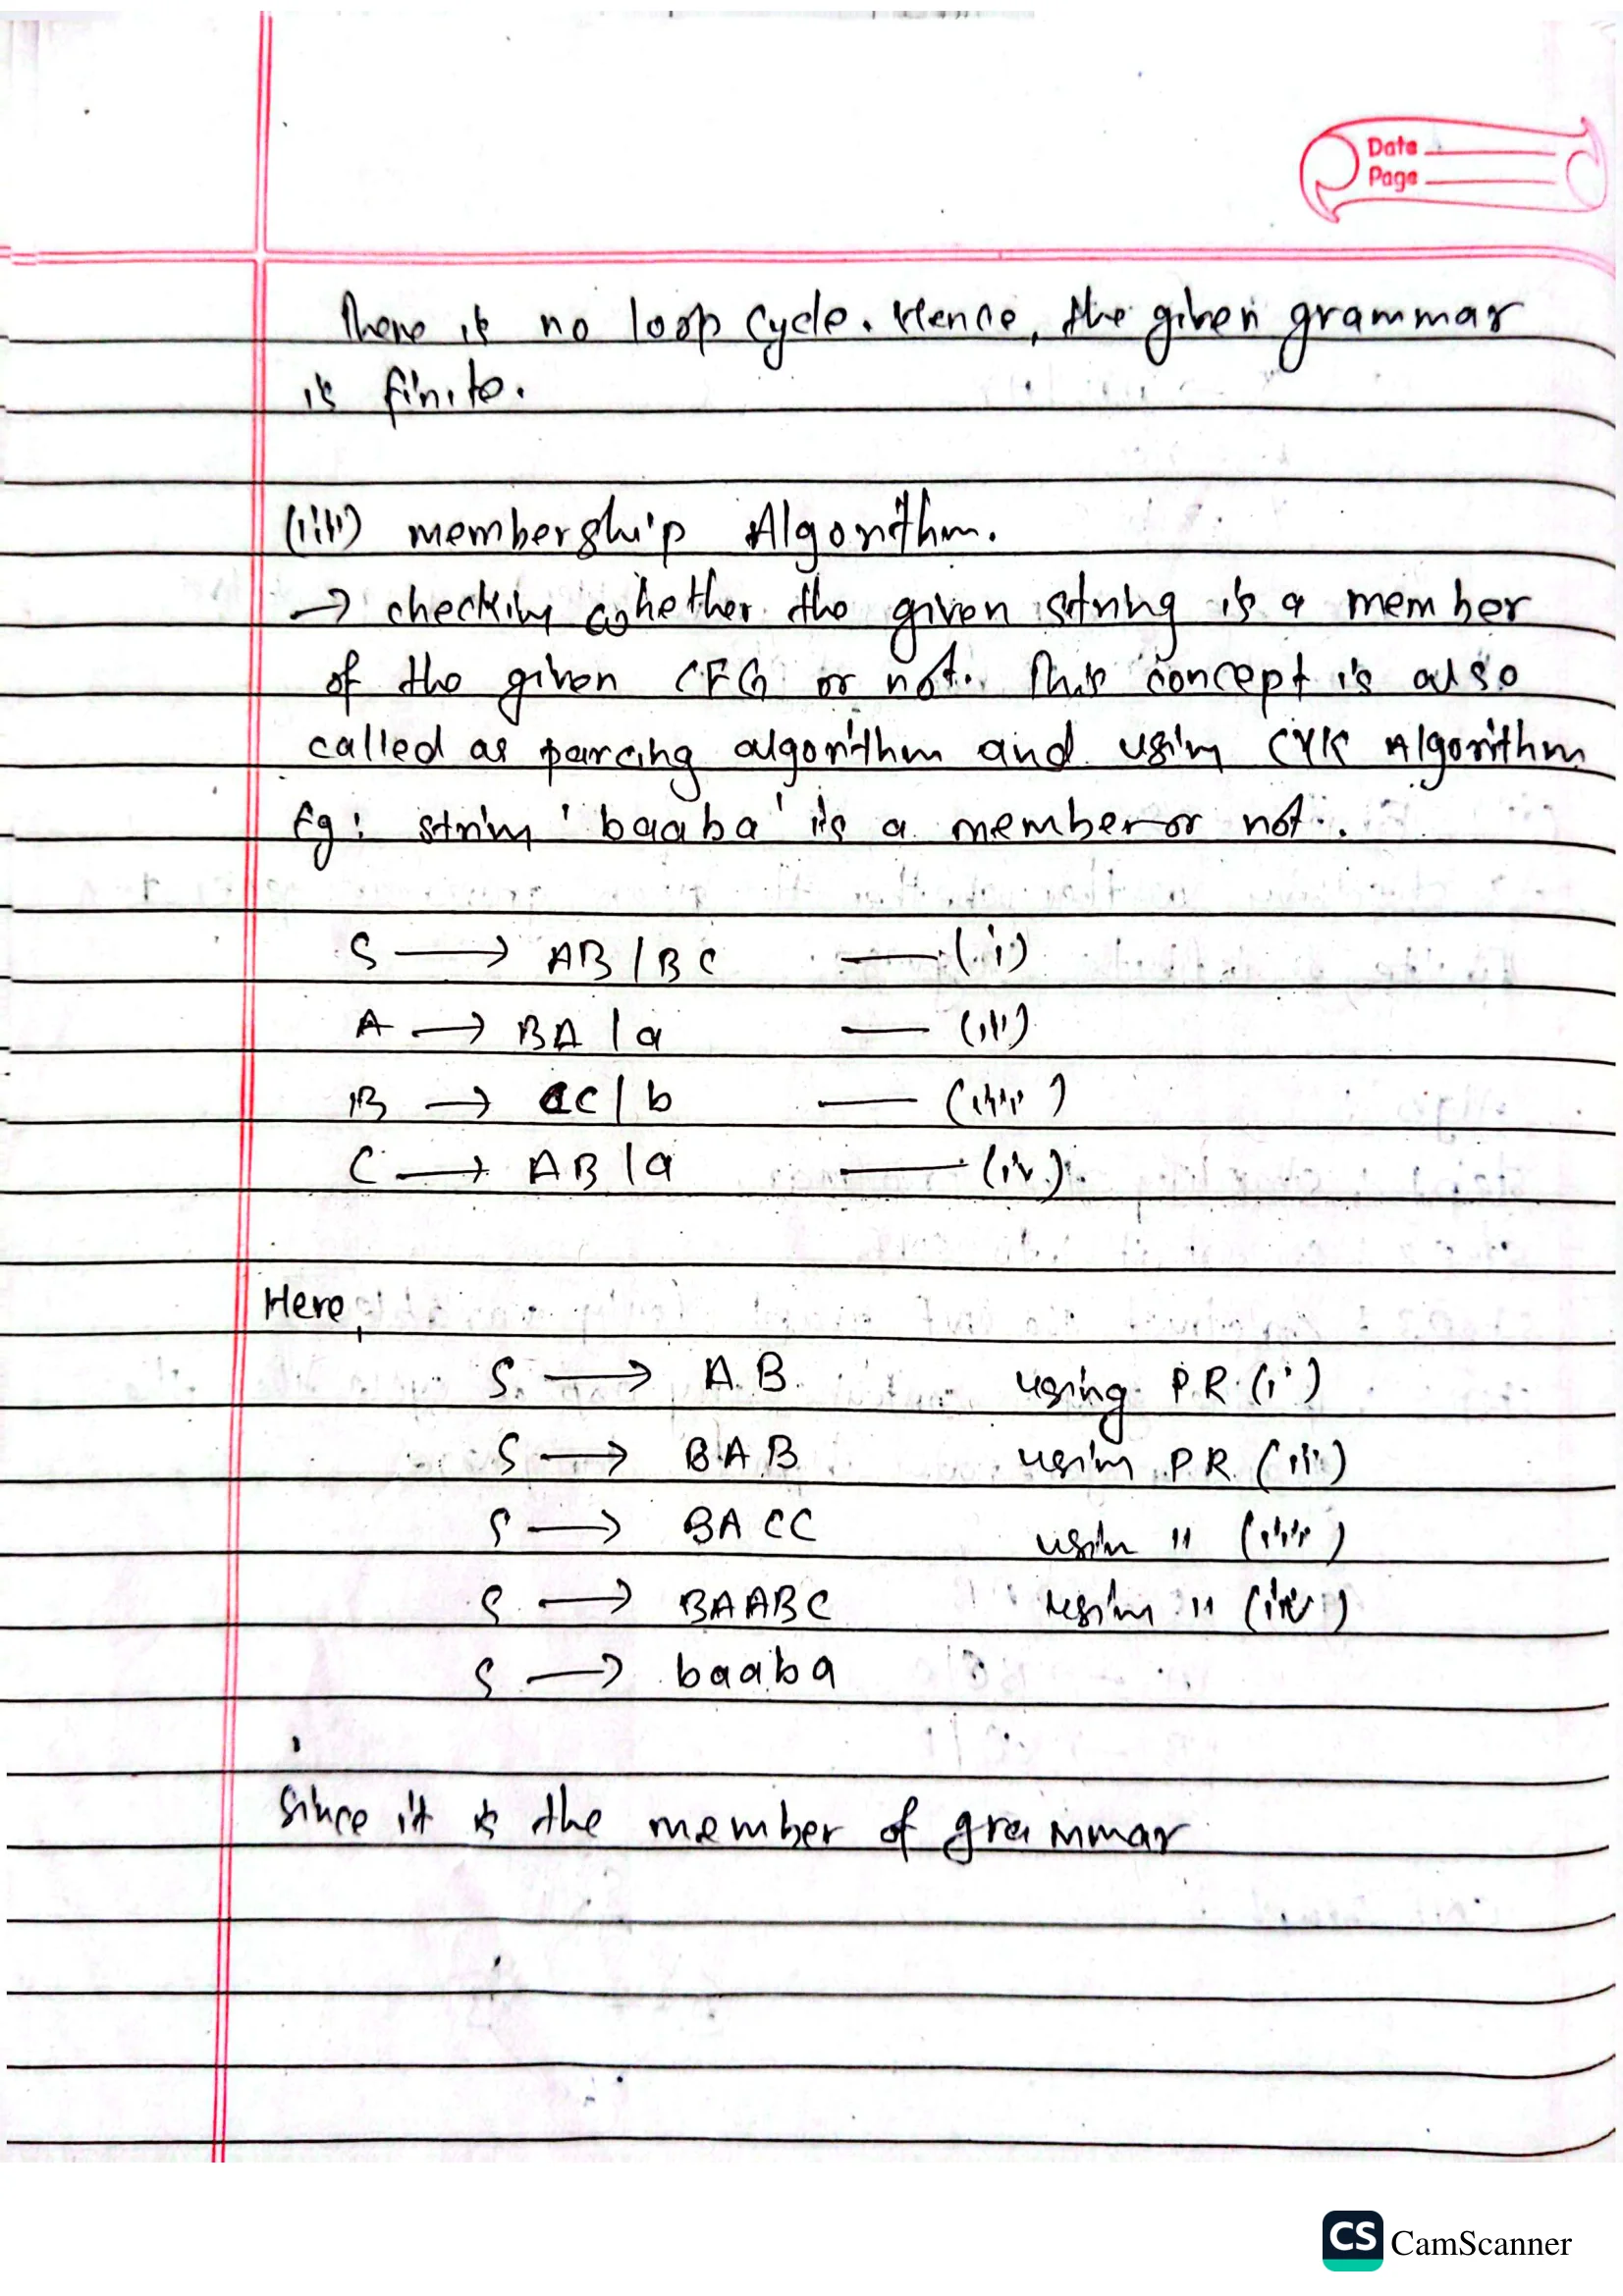 Date
Page
There is no loop cycle. Hence, the given grammar
is finite.
(iii) membership Algorithm.
→ checking whether the given string is a member
of the given CFG or not. This concept is also
called as parcing algorithm and using CYK Algorithm
Eg: string 'baaba' is a member or not.
S → AB | BC — (i)
A → BA | a — (ii)
B → CC | b — (iii)
C → AB | a — (iv)
Here,
S → AB using PR (i)
S → BAB using PR (ii)
S → BACC using " (iii)
S → BAABC using " (iv)
S → baaba
Since it is the member of grammar
CS CamScanner